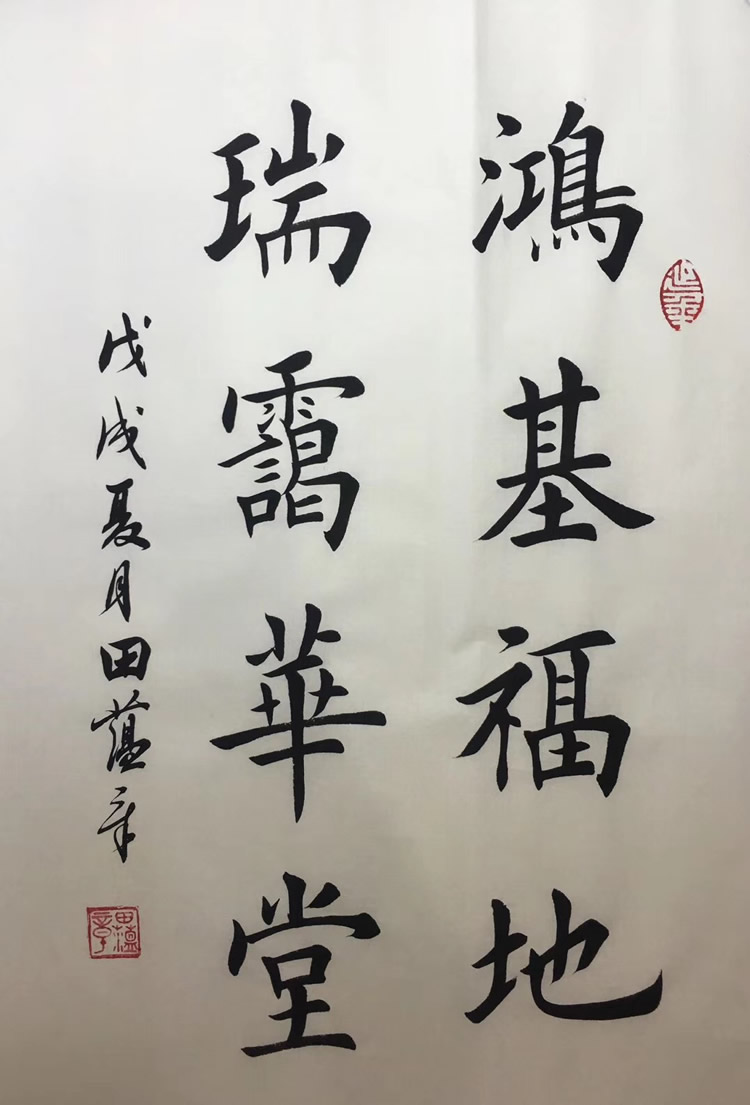 鴻基福地
瑞靄華堂
戊戌夏月田蘊章
田蘊章